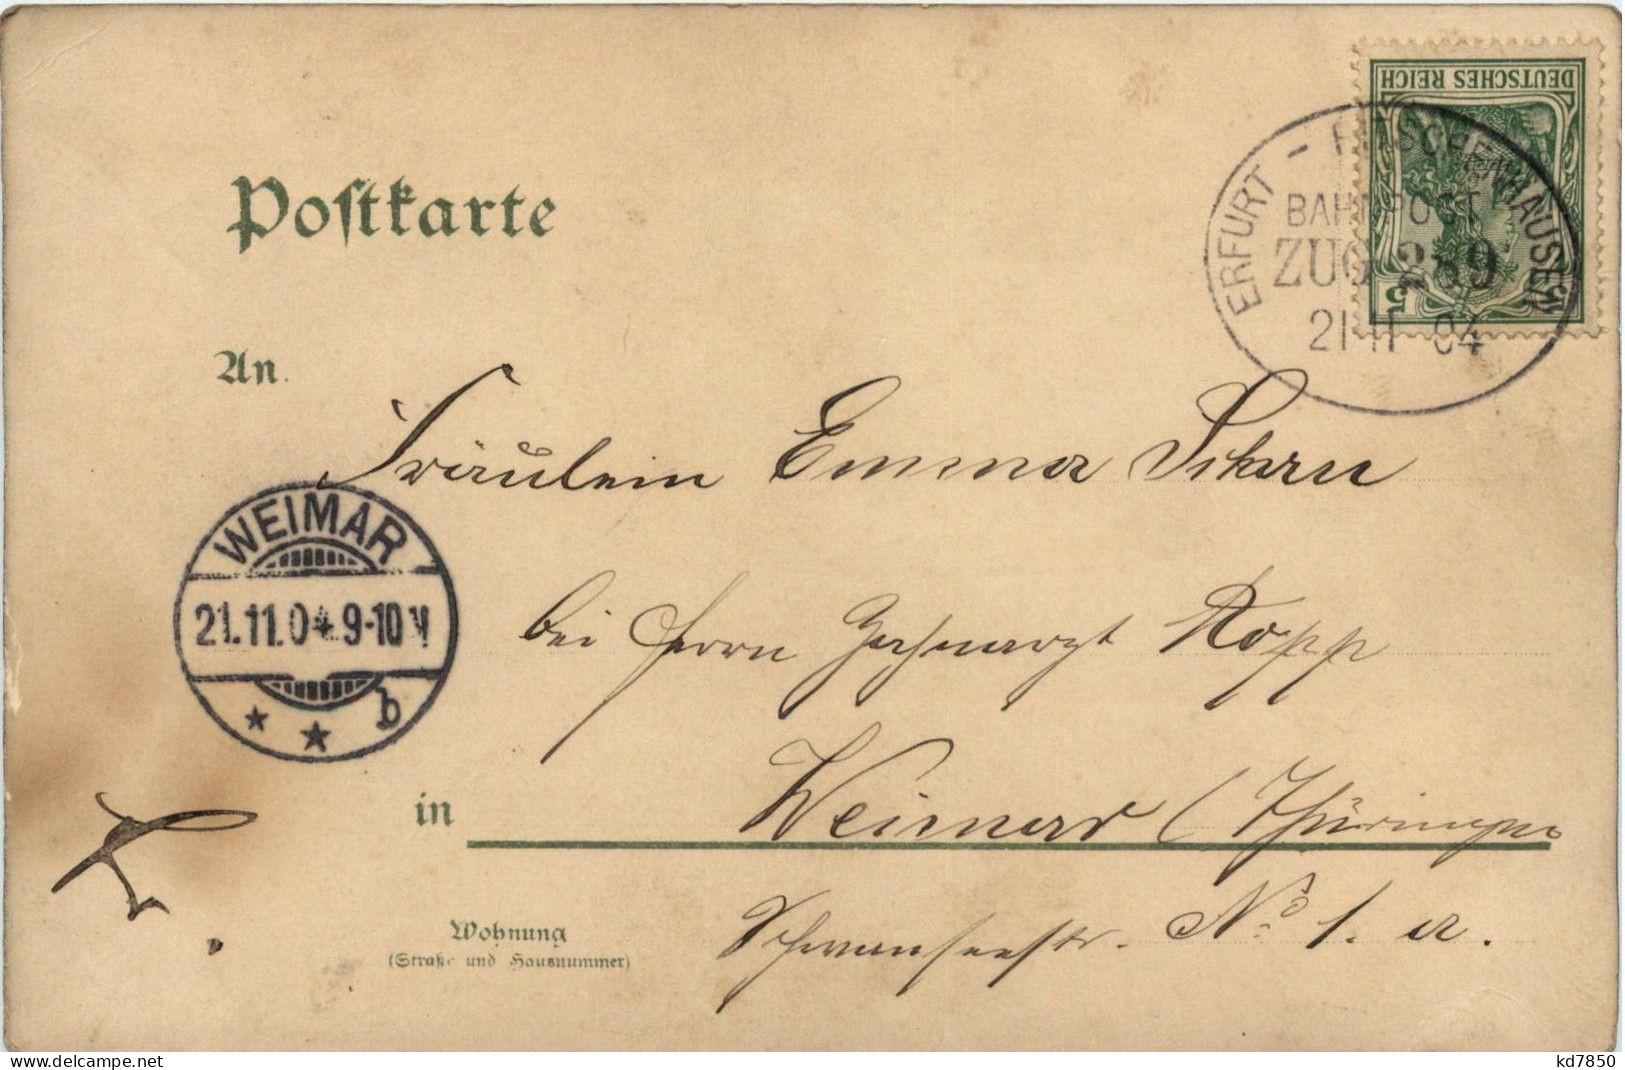 DEUTSCHES REICH
5
ERFURT - RITSCHENHAUSEN
BAHNPOST
ZUG 9
21 11 04
Postkarte
An
Fräulein Emma
WEIMAR
21.11.04.9-10 V
b
bei Herrn Zahnarzt Kopp
in
Weimar (Thüringen
Wohnung
(Straße und Hausnummer)
Schwanseestr. No 1. a.
www.delcampe.net
kd7850